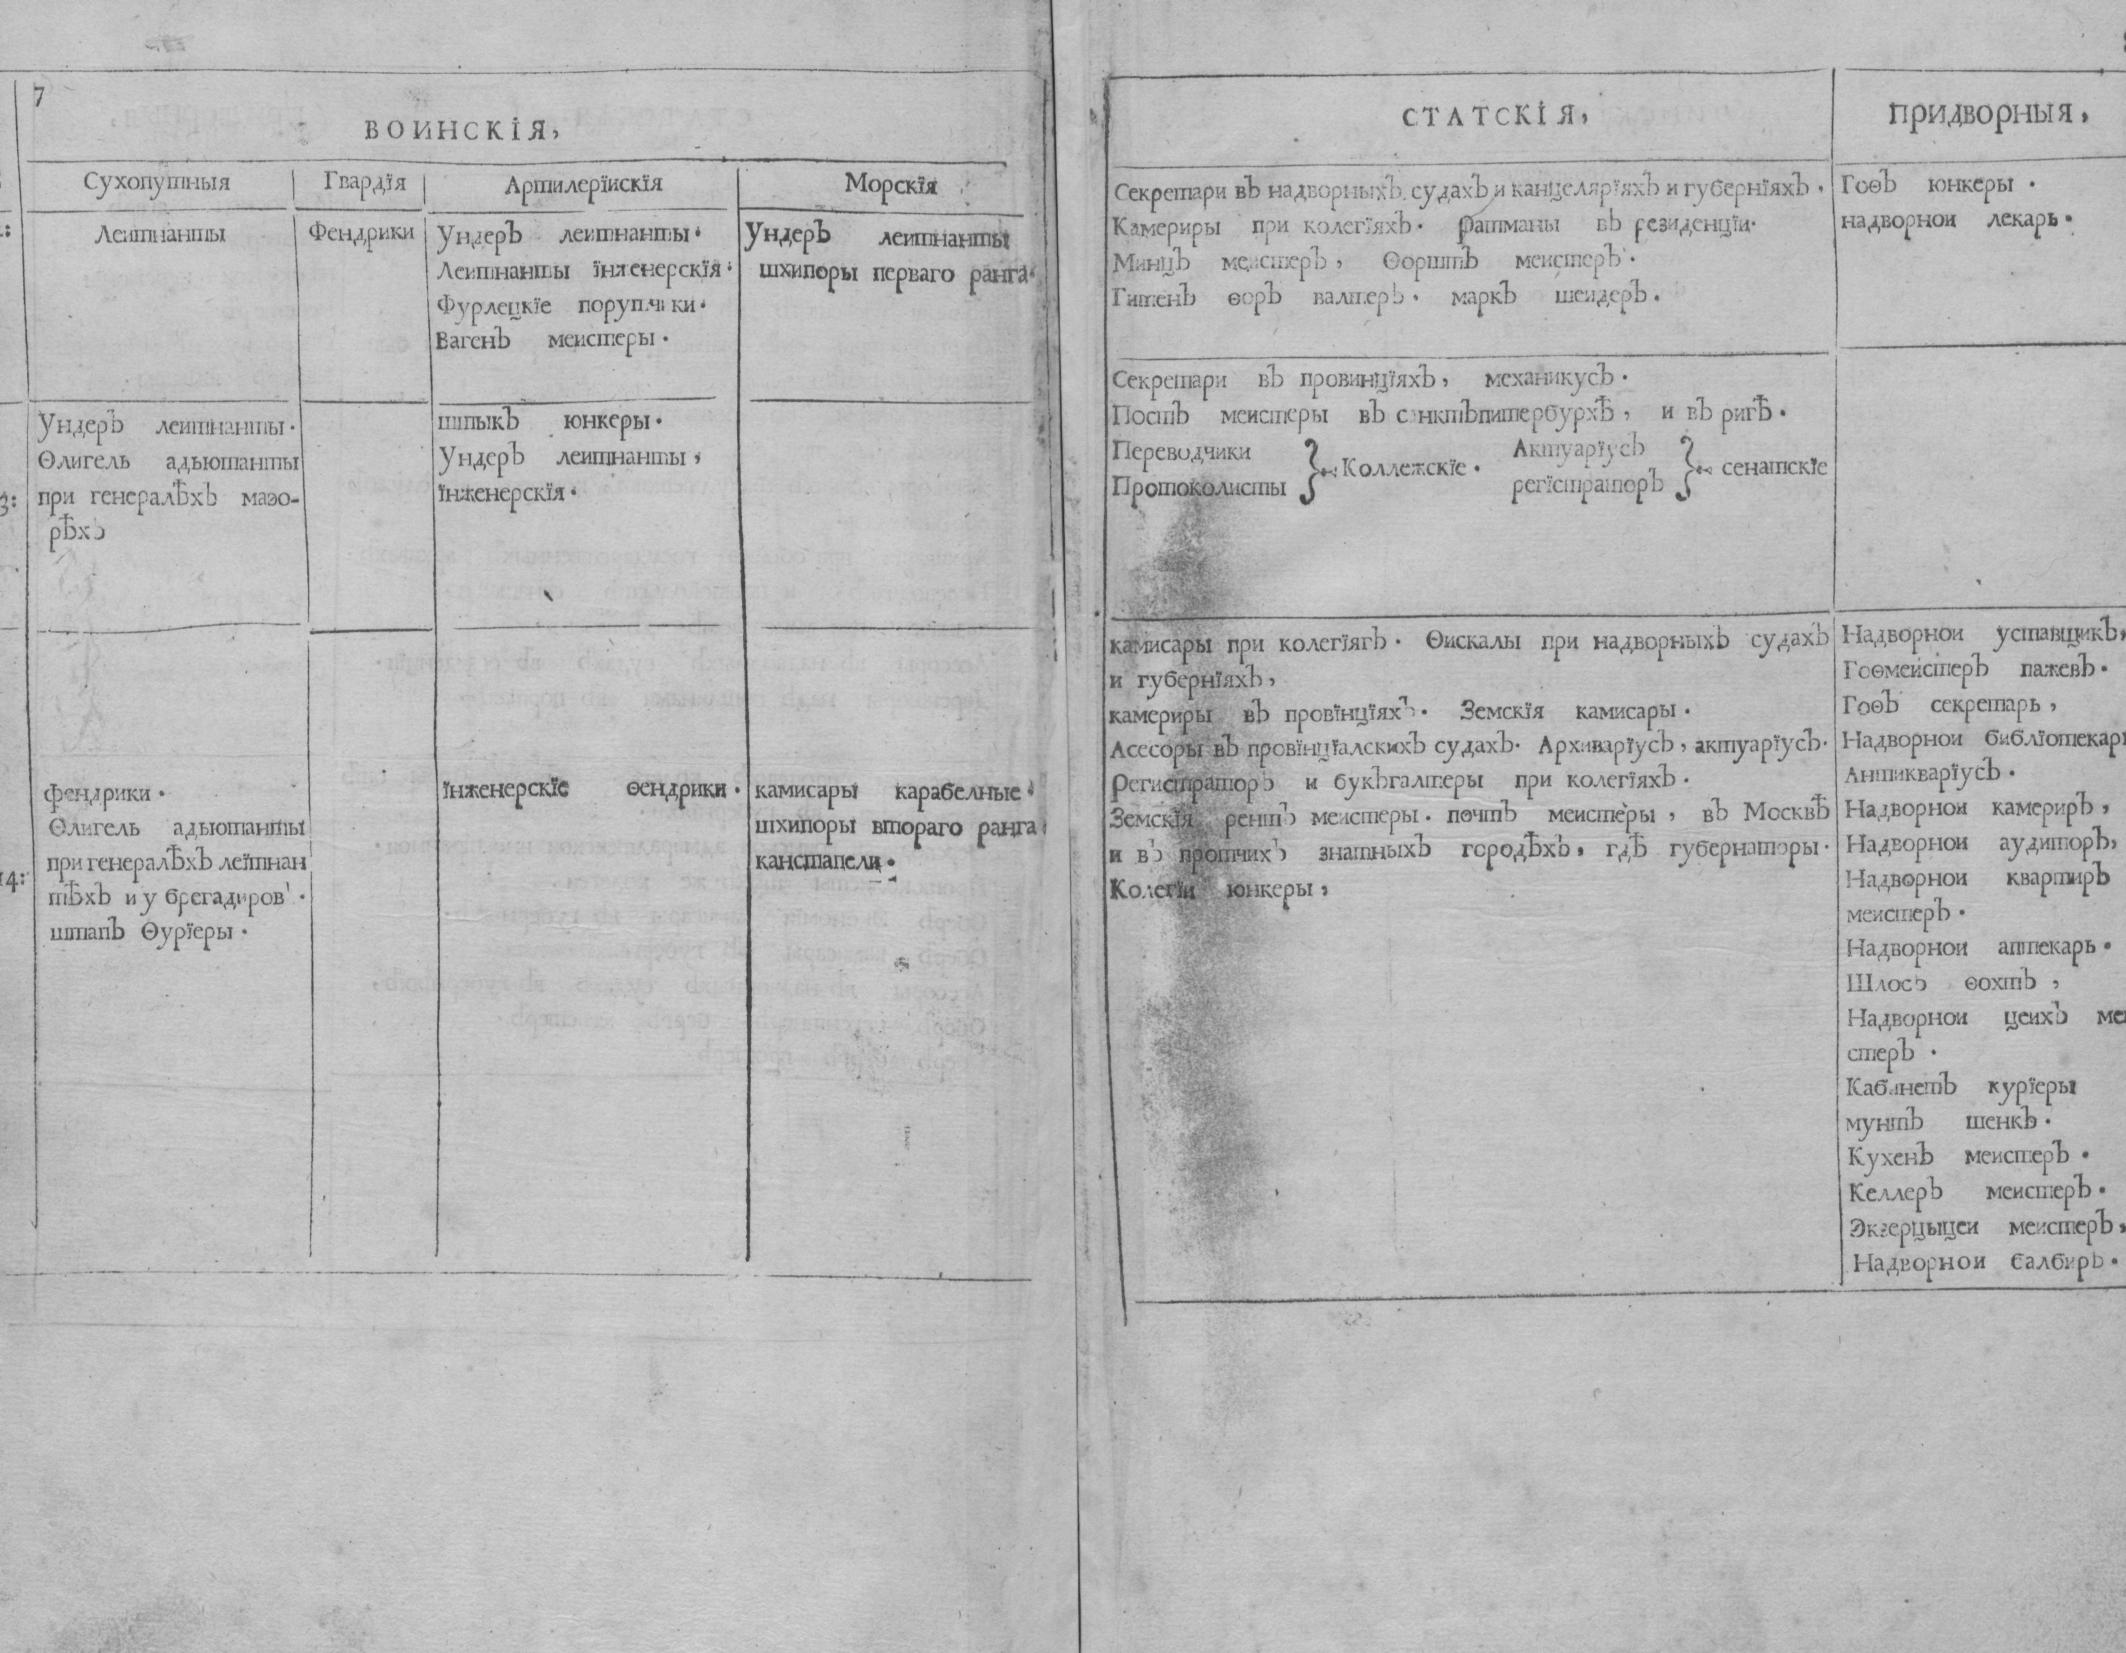 7
ВОИНСКІЯ,
Сухопутныя
Гвардїя
Артилерїискїя
Морскїя
Леитнанты
Фендрики
Ундеръ леитнанты.
Леитнанты їнженерскїя.
Фурлецкїе поручики.
Вагенъ меистеры.
Ундеръ леитнанты
шхипоры перваго ранга.
3:
Ундеръ леитнанты.
Ѳлигель адъютанты
при генералѣхъ маэо-
рѣхъ
шпыкъ юнкеры.
Ундеръ леитнанты,
їнженерскїя.
14:
фендрики.
Ѳлигель адъютанты
при генералѣхъ леїтнан
тѣхъ и у брегадиров'.
штапъ Ѳурїеры.
їнженерскїе ѳендрики.
камисары карабелные.
шхипоры втораго ранга.
канстапели.
СТАТСКІЯ,
Секретари въ надворныхъ судахъ и канцелярїяхъ и губернїяхъ,
Камериры при колегїяхъ. ратманы въ резиденцїи.
Минцъ меистеръ, Ѳорштъ меистеръ.
Гитенъ ѳоръ валтеръ. маркъ шеидеръ.
Секретари въ провинцїяхъ, механикусъ.
Постъ меистеры въ санктъпитербурхѣ, и въ ригѣ.
Переводчики
Протоколисты
Коллежскїе.
Актуарїусъ
регїстраторъ
сенатскїе
камисары при колегїягъ. Ѳискалы при надворныхъ судахъ
и губернїяхъ,
камериры въ провїнцїяхъ. Земскїя камисары.
Асесоры въ провїнцїалскихъ судахъ. Архиварїусъ, актуарїусъ.
Регистраторъ и букъгалтеры при колегїяхъ.
Земскїя рентъ меистеры. почтъ меистеры, въ Москвѣ
и въ протчихъ знатныхъ городѣхъ, гдѣ губернаторы.
Колегїи юнкеры,
ПРИДВОРНЫЯ,
Гоѳъ юнкеры.
надворнои лекарь.
Надворнои уставщикъ,
Гоѳмеистеръ пажевъ.
Гоѳъ секретарь,
Надворнои библїотекарь
Антикварїусъ.
Надворнои камериръ,
Надворнои аудиторъ,
Надворнои квартиръ
меистеръ.
Надворнои аптекарь.
Шлосъ ѳохтъ,
Надворнои цеихъ меи
стеръ.
Кабинетъ курїеры
мунтъ шенкъ.
Кухенъ меистеръ.
Келлеръ меистеръ.
Экзерцыцеи меистеръ,
Надворнои балбиръ.